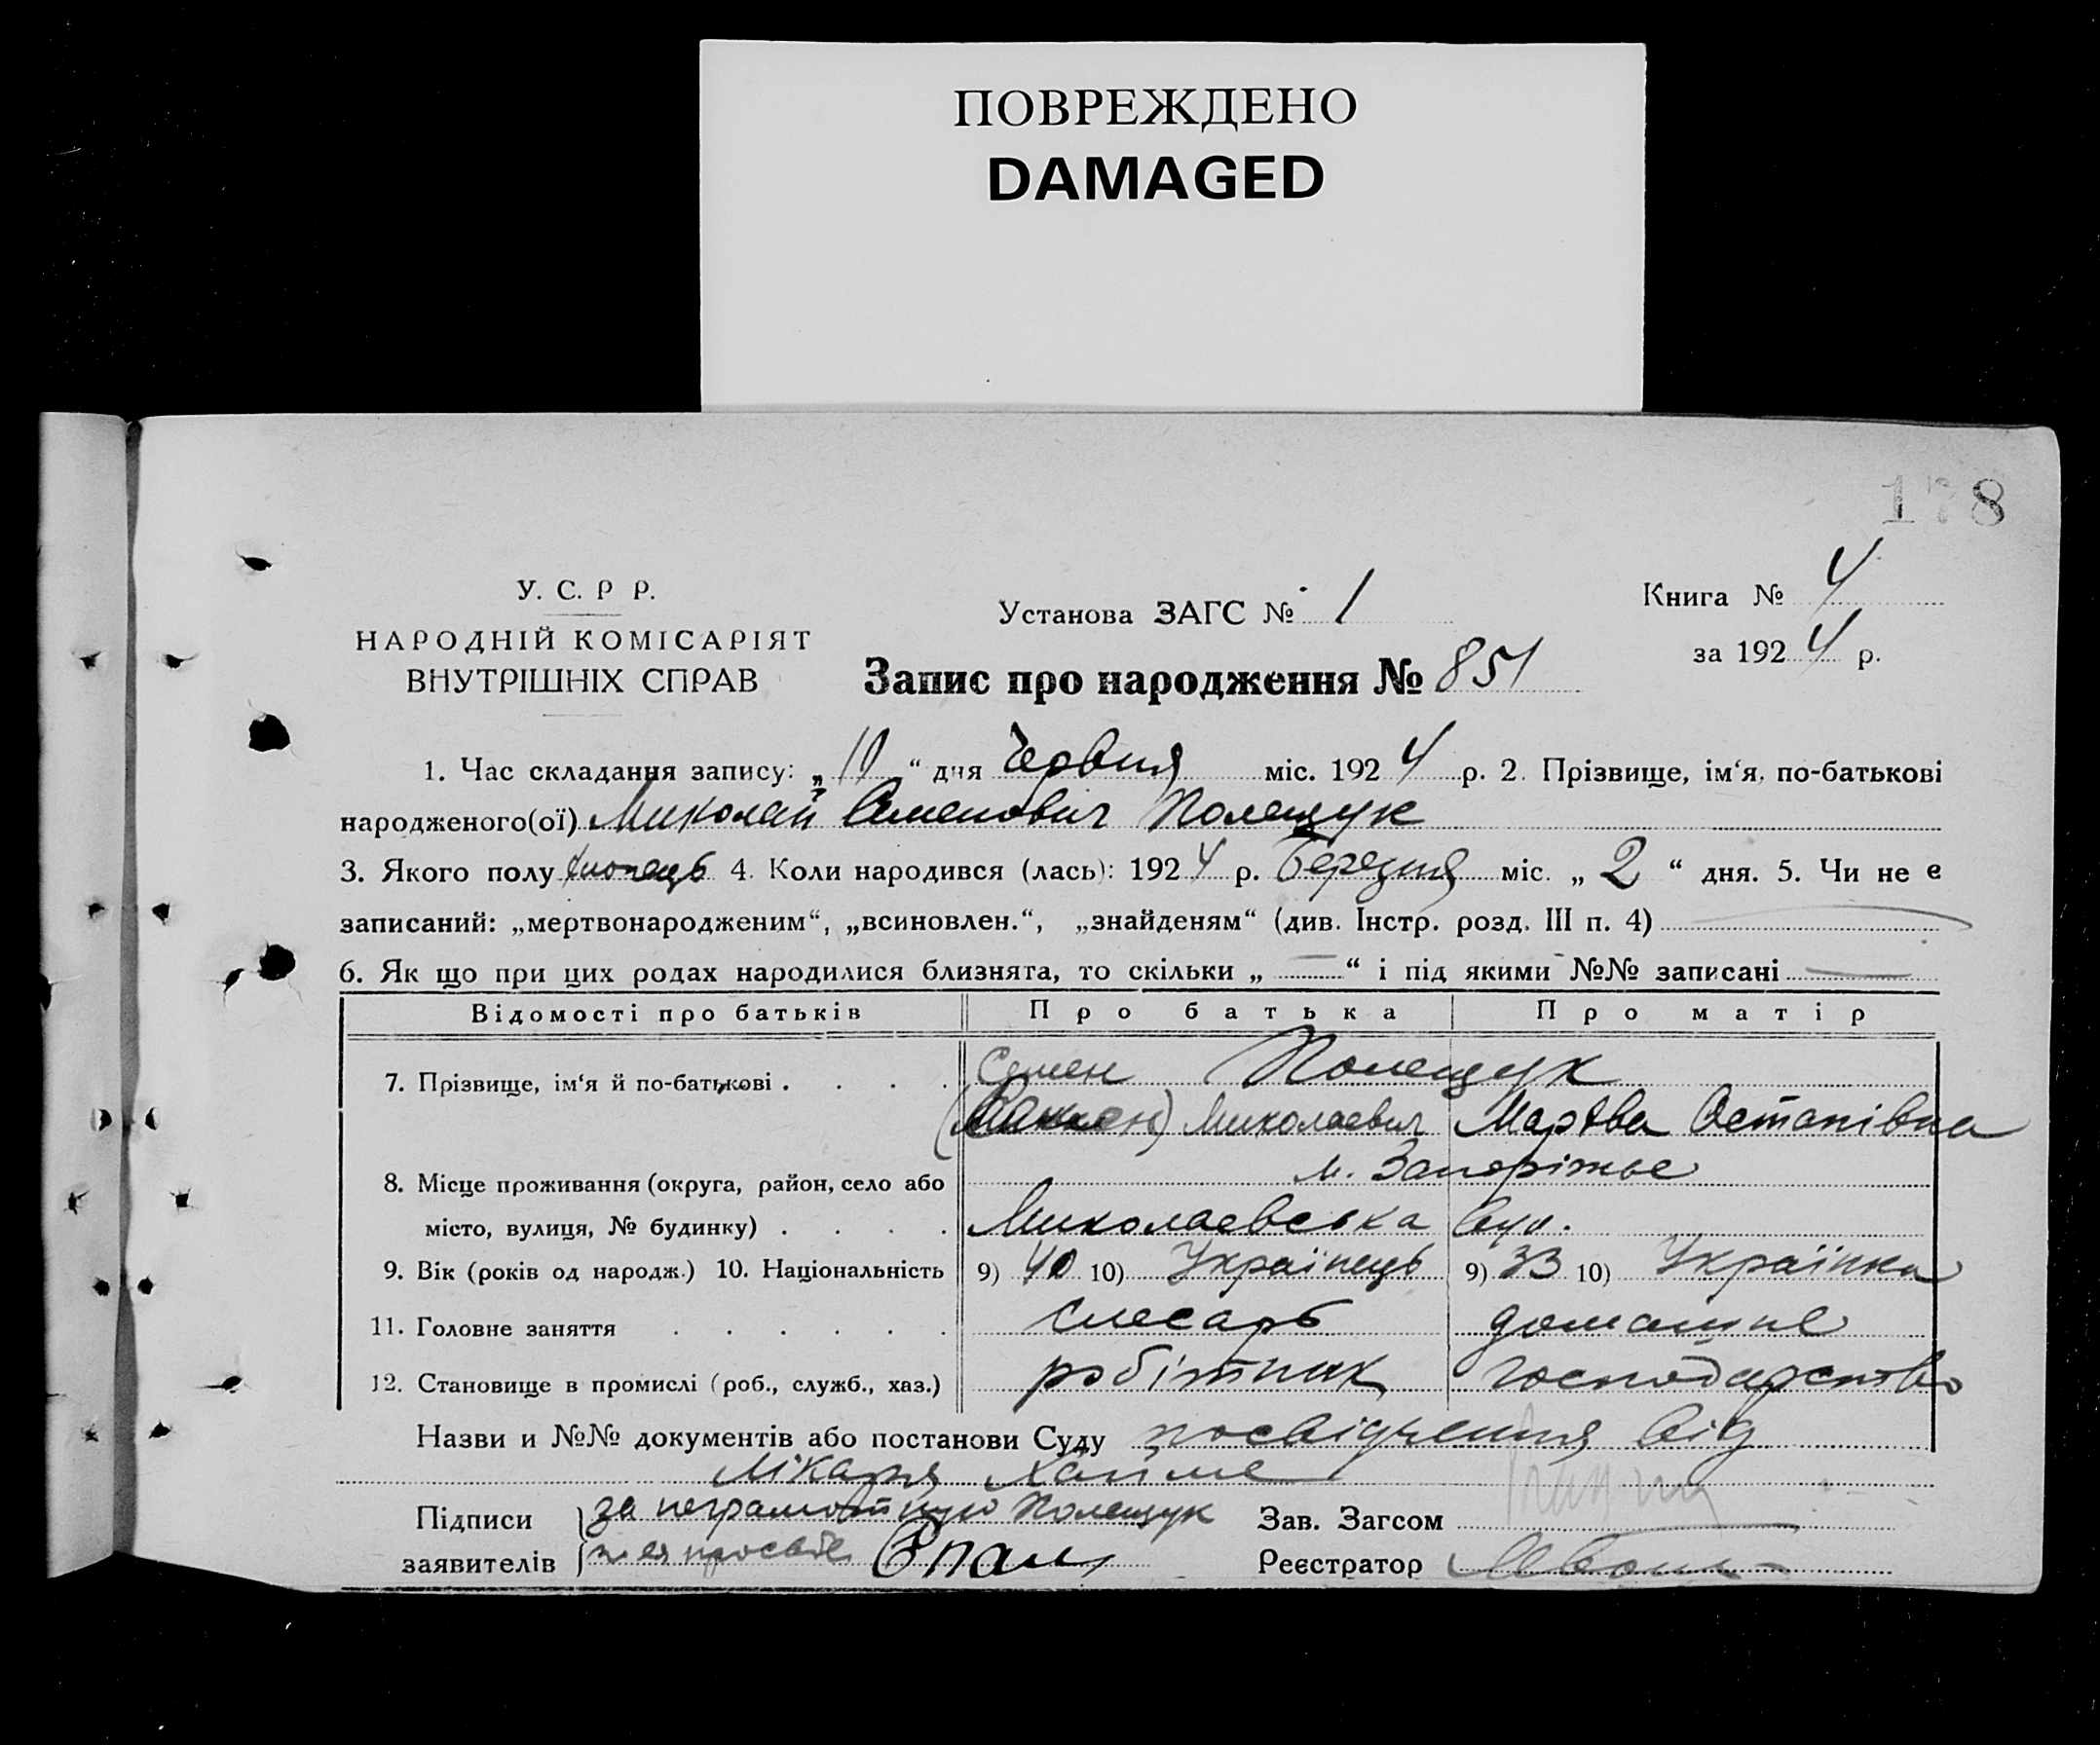 ПОВРЕЖДЕНО
DAMAGED
178
У. С. Р Р.
НАРОДНІЙ КОМІСАРІЯТ
ВНУТРІШНІХ СПРАВ
Установа ЗАГС № 1
Книга № 4
за 1924 р.
Запис про народження № 851
1. Час складання запису: „10“ дня Червня міс. 1924 р. 2. Прізвище, ім‘я, по-батькові
народженого(ої) Миколай Семенович Полещук
3. Якого полу хлопець 4. Коли народився (лась): 1924 р. Березня міс. „2“ дня. 5. Чи не є
записаний: „мертвонародженим“, „всиновлен.“, „знайденям“ (див. Інстр. розд. III п. 4)
6. Як що при цих родах народилися близнята, то скільки „—“ і під якими №№ записані —
Відомості про батьків Про батька Про матір
7. Прізвище, ім‘я й по-батькові . . . . Семен Полещук
Миколаевич Остапівна
м. Запоріжье
8. Місце проживання (округа, район, село або
місто, вулиця, № будинку) . . . . Миколаевська вул.
9. Вік (років од народж.) 10. Національність 9) 40 10) Українець 9) 33 10) Українка
11. Головне заняття . . . . . . слесарь домашне
12. Становище в промислі (роб., служб., хаз.) робітник господарство
Назви и №№ документів або постанови Суду посвідчення від
лікаря
Підписи за неграмотную Полещук Зав. Загсом
заявителів Реєстратор